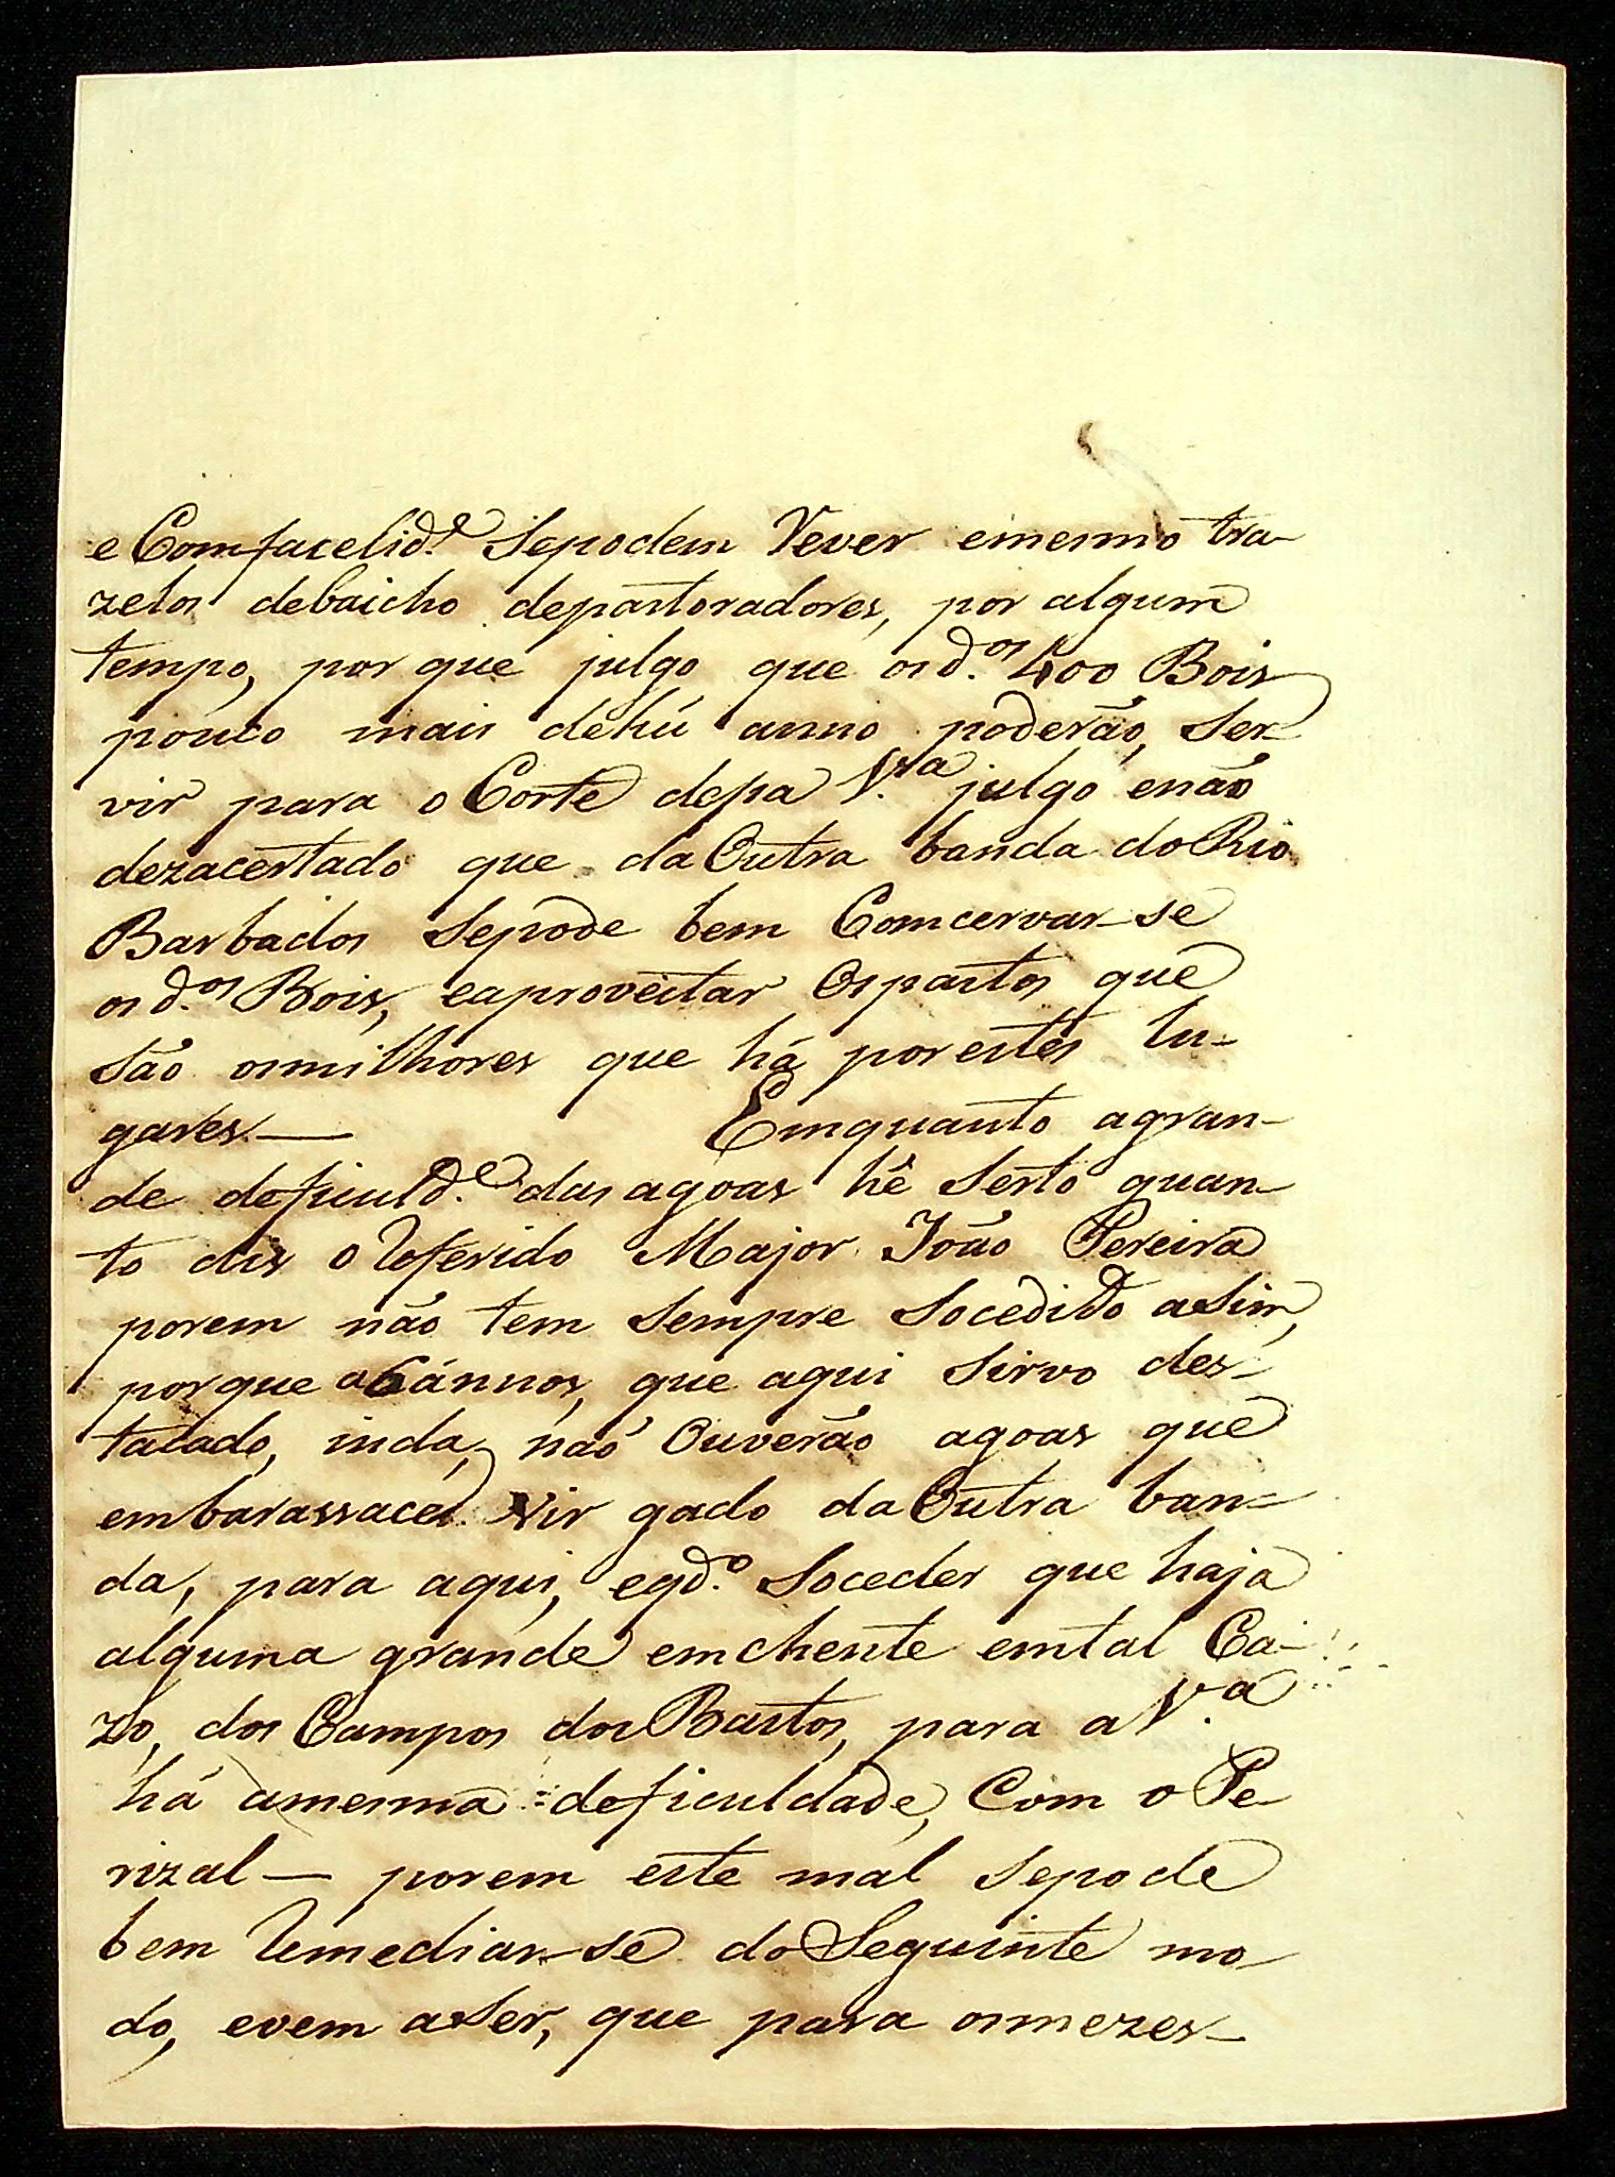 e Comfacelid.e Sepodem Vever emesmo tra-
zelos debaicho depastoradores, por algum
tempo, por que julgo que os d.os 400 Bois
pouco mais dehú anno poderão, Ser-
vir para o Corte desa V.a julgo enão
dezacertado que da Outra banda do Rio
Barbados Sepode bem Comcervar-se
os d.os Bois, eaproveitar Ospastos que
são osmilhores que há porestes lu-
gares.— Emquanto agran-
de deficuld.e das agoas hê Serto quan-
to dis o Referido Major João Pereira
porem não tem Sempre Socedido aSim,
porque a 6 ánnos, que aqui Sirvo des-
tacado, inda, naó Ouverão agoas que
embarassacem vir gado da Outra ban=
da, para aqui, eqd.o Soceder que haja
alguma grande emchente emtal Ca-
zo, dos Campos dos Bastos, para a V.a
há amesma deficuldade, Com o Pe-
rizal— porem este mal Sepode
bem Remediar-se do Seguinte mo-
do, evem aSer, que para osmezes-